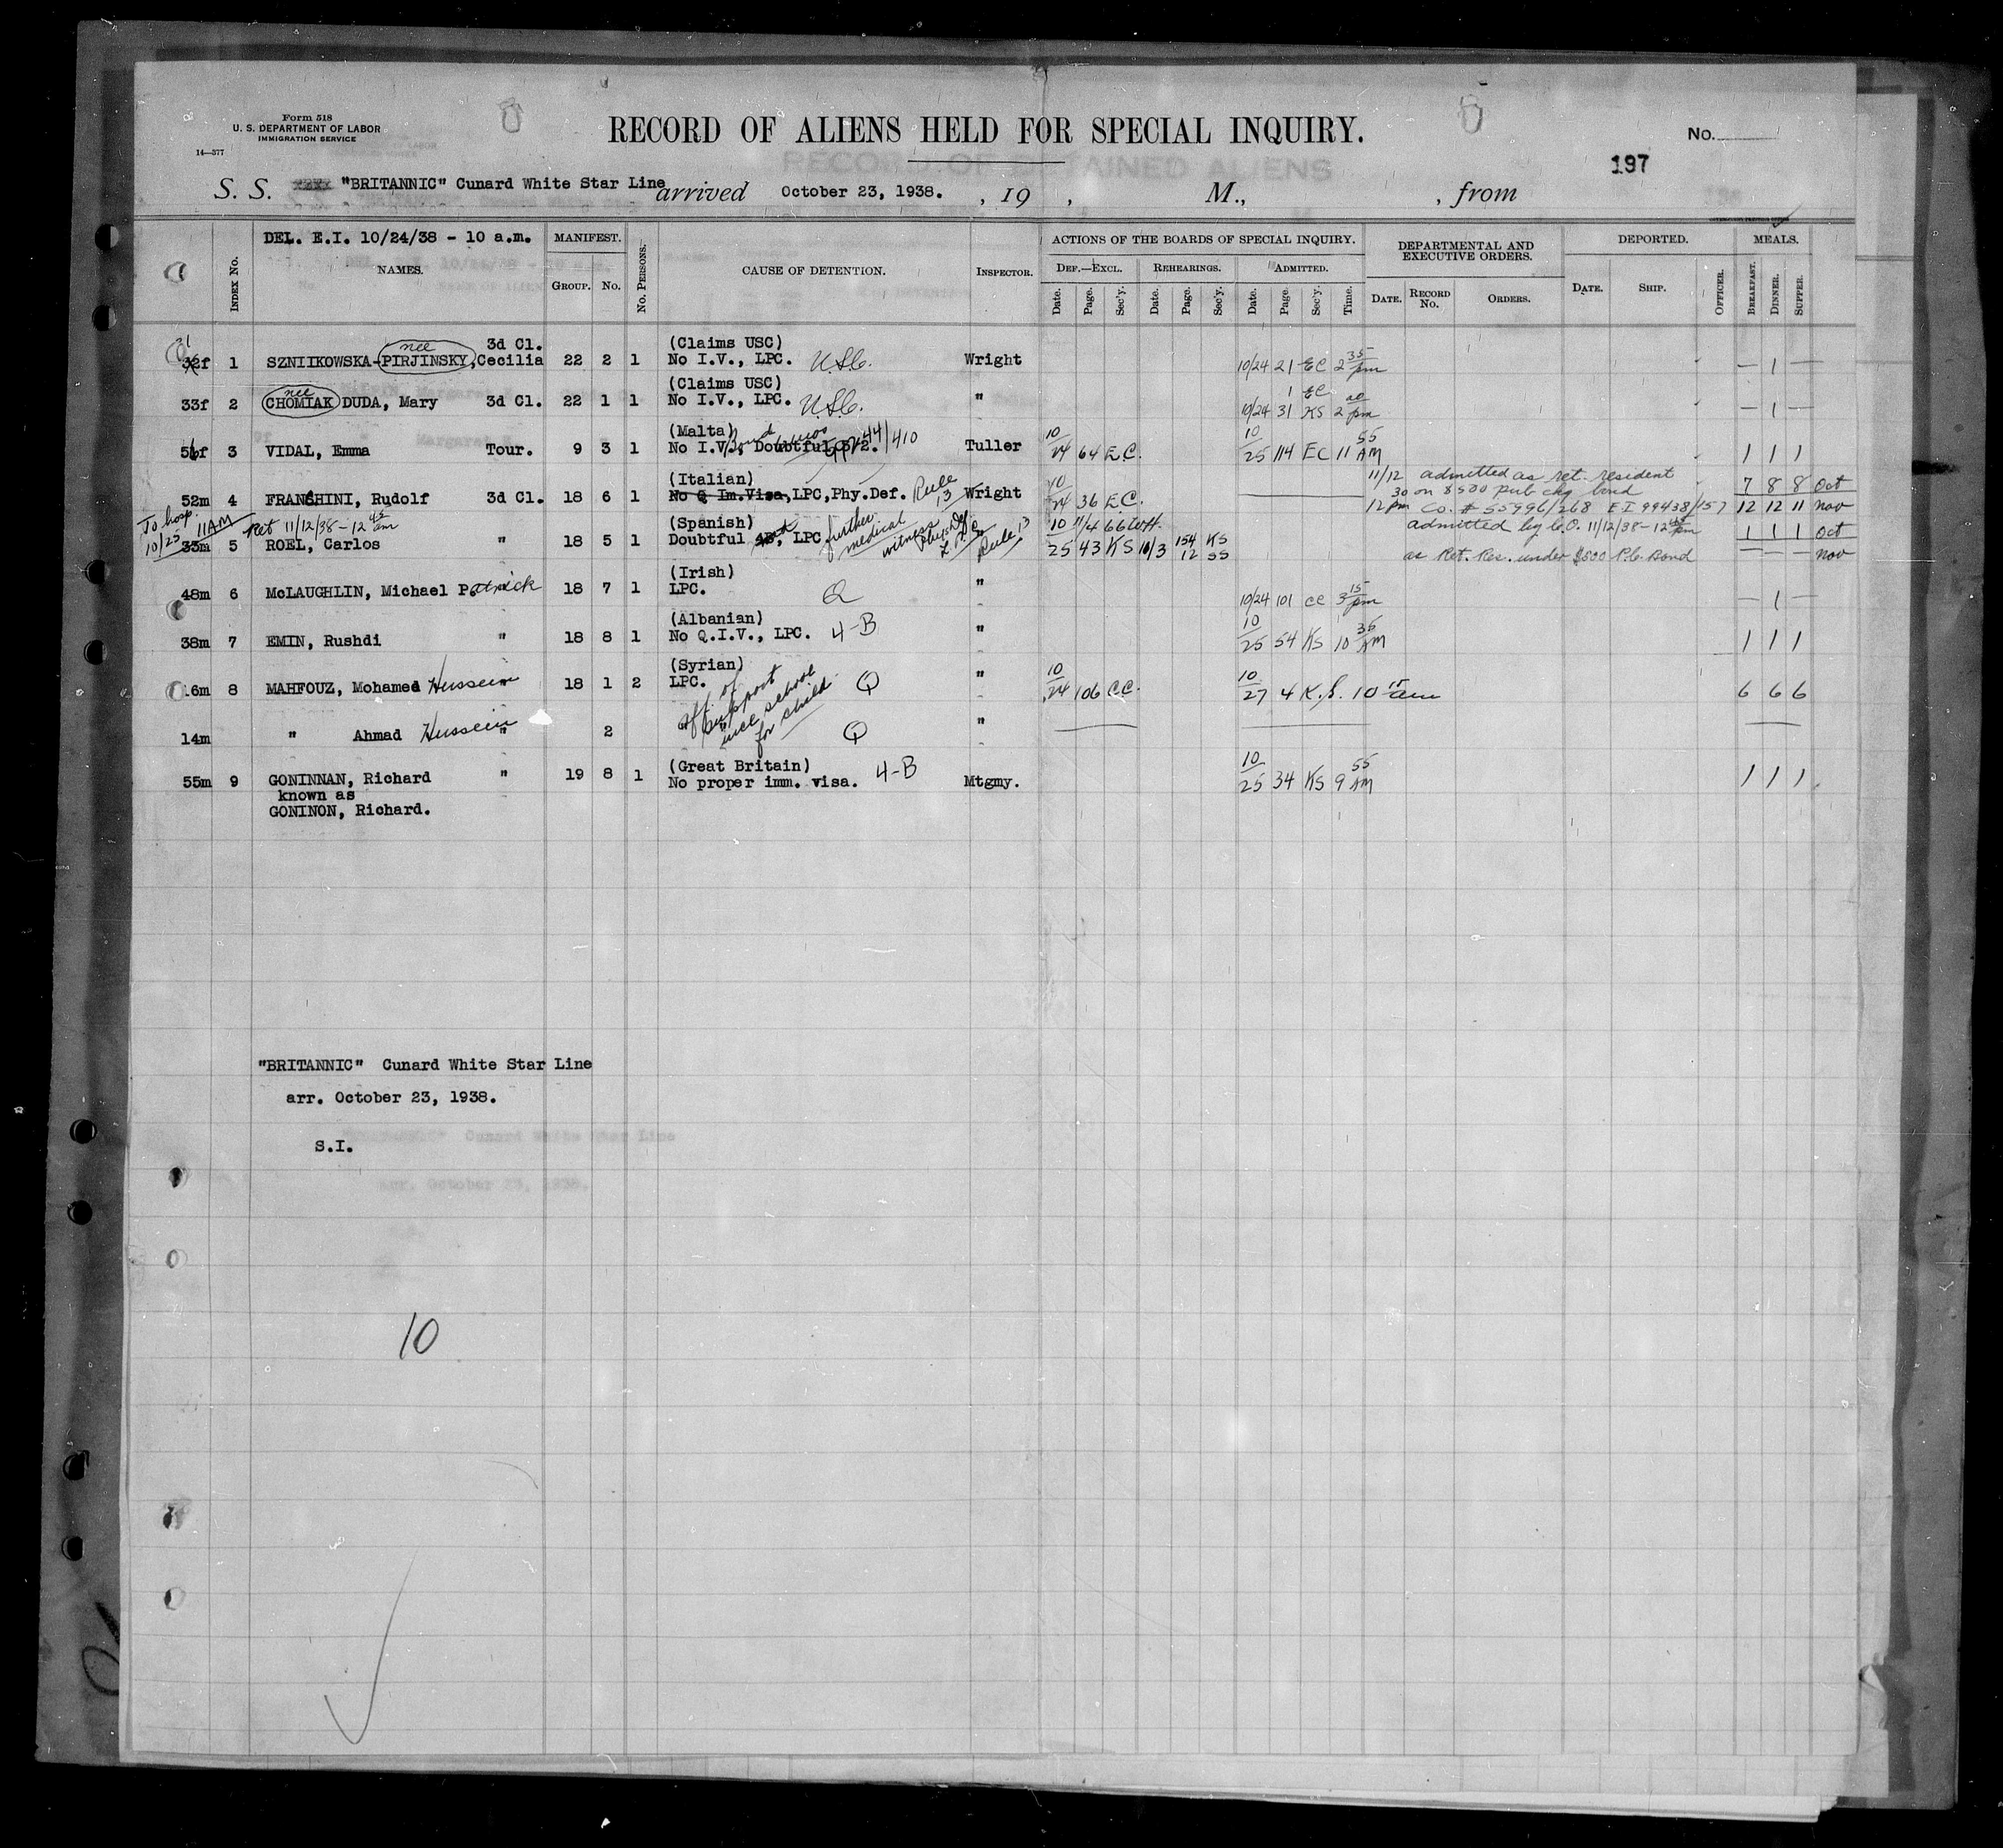 Form 518
U. S. DEPARTMENT OF LABOR
IMMIGRATION SERVICE
14—577
RECORD OF ALIENS HELD FOR SPECIAL INQUIRY.
No.
197
S. S. "BRITANNIC" Cunard White Star Line arrived October 23, 1938. , 19 , M., , from
DEL. E.I. 10/24/38 - 10 a.m.
INDEX No. NAMES. MANIFEST. GROUP. No. No. PERSONS. CAUSE OF DETENTION. INSPECTOR.
ACTIONS OF THE BOARDS OF SPECIAL INQUIRY. DEPARTMENTAL AND EXECUTIVE ORDERS. DEPORTED. MEALS.
DEF.—EXCL. REHEARINGS. ADMITTED.
Date. Page. Sec'y. Date. Page. Sec'y. Date. Page. Sec'y. Time. DATE. RECORD No. ORDERS. DATE. SHIP. OFFICER. BREAKFAST. DINNER. SUPPER.
nee 3d Cl. (Claims USC)
32f 1 SZNIIKOWSKA-PIRJINSKY, Cecilia 22 2 1 No I.V., LPC. U.S.C. Wright 10/24 21 EC 2 35 pm — 1 —
nee (Claims USC) 1 EC
33f 2 CHOMIAK DUDA, Mary 3d Cl. 22 1 1 No I.V., LPC. U.S.C. " 10/24 31 KS 2 20 pm — 1 —
(Malta)
3 VIDAL, Emma Tour. 9 3 1 No I.V., Doubtful 3/2. 44/410 Tuller 10/24 64 E.C. 10/25 114 EC 11 55 AM 1 1 1
(Italian) 11/12 admitted as ret. resident
52m 4 FRANCHINI, Rudolf 3d Cl. 18 6 1 No Q Im.Visa, LPC, Phy.Def. Rule 13 Wright 10/24 36 E.C. 30 on $500 pub chg bond 7 8 8 Oct
12 pm Co. # 55996/268 E I 99438/157 12 12 11 Nov
To hosp. 10/25 11AM Ret 11/12/38 - 12 45 am
(Spanish) admitted by C.O. 11/12/38 - 12 45 pm
33m 5 ROEL, Carlos " 18 5 1 Doubtful LPC further medical witness Rule 13 10/25 43 KS 11/4 66 154 KS 12 SS 1 1 1 Oct
as Ret. Res. under $500 P.C. Bond — — — Nov
(Irish)
48m 6 McLAUGHLIN, Michael Patrick " 18 7 1 LPC. Q " 10/24 101 CC 3 15 pm — 1 —
(Albanian)
38m 7 EMIN, Rushdi " 18 8 1 No Q.I.V., LPC. 4-B " 10/25 54 KS 10 35 AM 1 1 1
(Syrian)
8 MAHFOUZ, Mohamed Hussein " 18 1 2 LPC. Q " 10/24 106 C.C. 10/27 4 K.S. 10 15 am 6 6 6
aff. of support incl school for child
14m " Ahmad Hussein " 2 Q "
(Great Britain)
55m 9 GONINNAN, Richard " 19 8 1 No proper imm. visa. 4-B Mtgmy. 10/25 34 KS 9 55 AM 1 1 1
known as
GONINON, Richard.
"BRITANNIC" Cunard White Star Line
arr. October 23, 1938.
S.I.
10